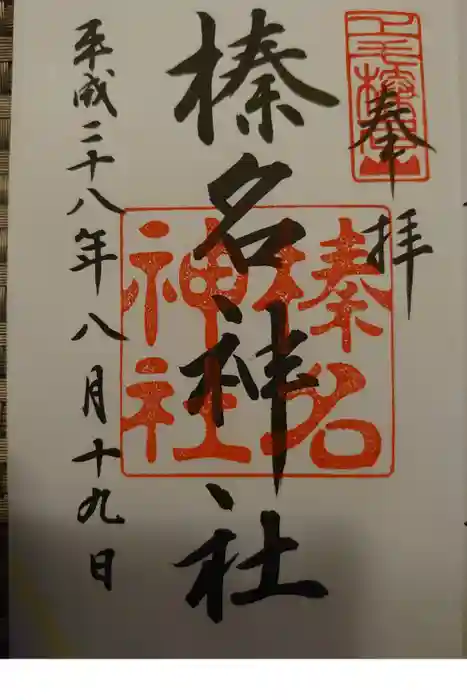 奉拝
上毛榛名山
榛名神社
榛名
神社
平成二十八年八月十九日